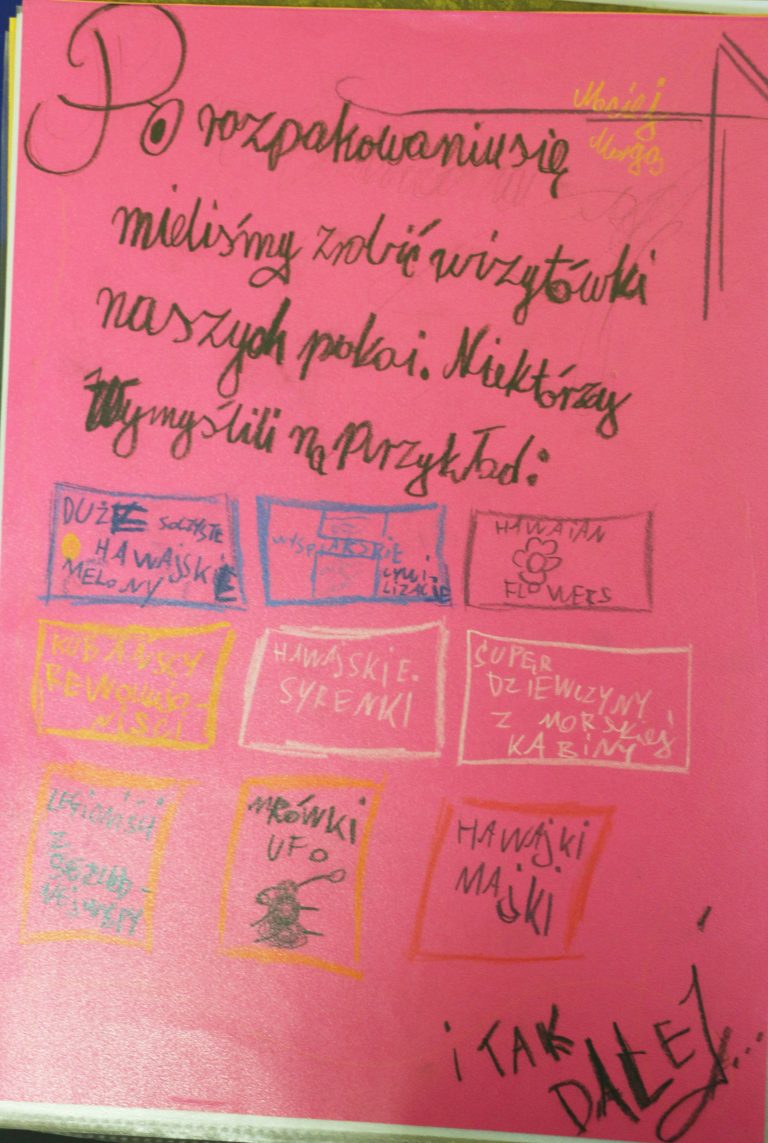 Maciej
Po rozpakowaniu się
mieliśmy zrobić wizytówki
naszych pokoi. Niektórzy
Wymyślili na Przykład:
DUŻE SOCZYSTE
HAWAJSKIE
MELONY
WYSPIARSKIE
CYWI-
LIZACJE
HAWAIAN
FLOWERS
KUBAŃSCY
REWOLUCJO-
NIŚCI
HAWAJSKIE.
SYRENKI
SUPER
DZIEWCZYNY
Z MORSKIEJ
KABINY
LEGIONIŚCI
Z
BEZLUD-
NEJ WYSPY
MRÓWKI
UFO
HAWAJKI
MAJKI
i TAK
DALEJ...